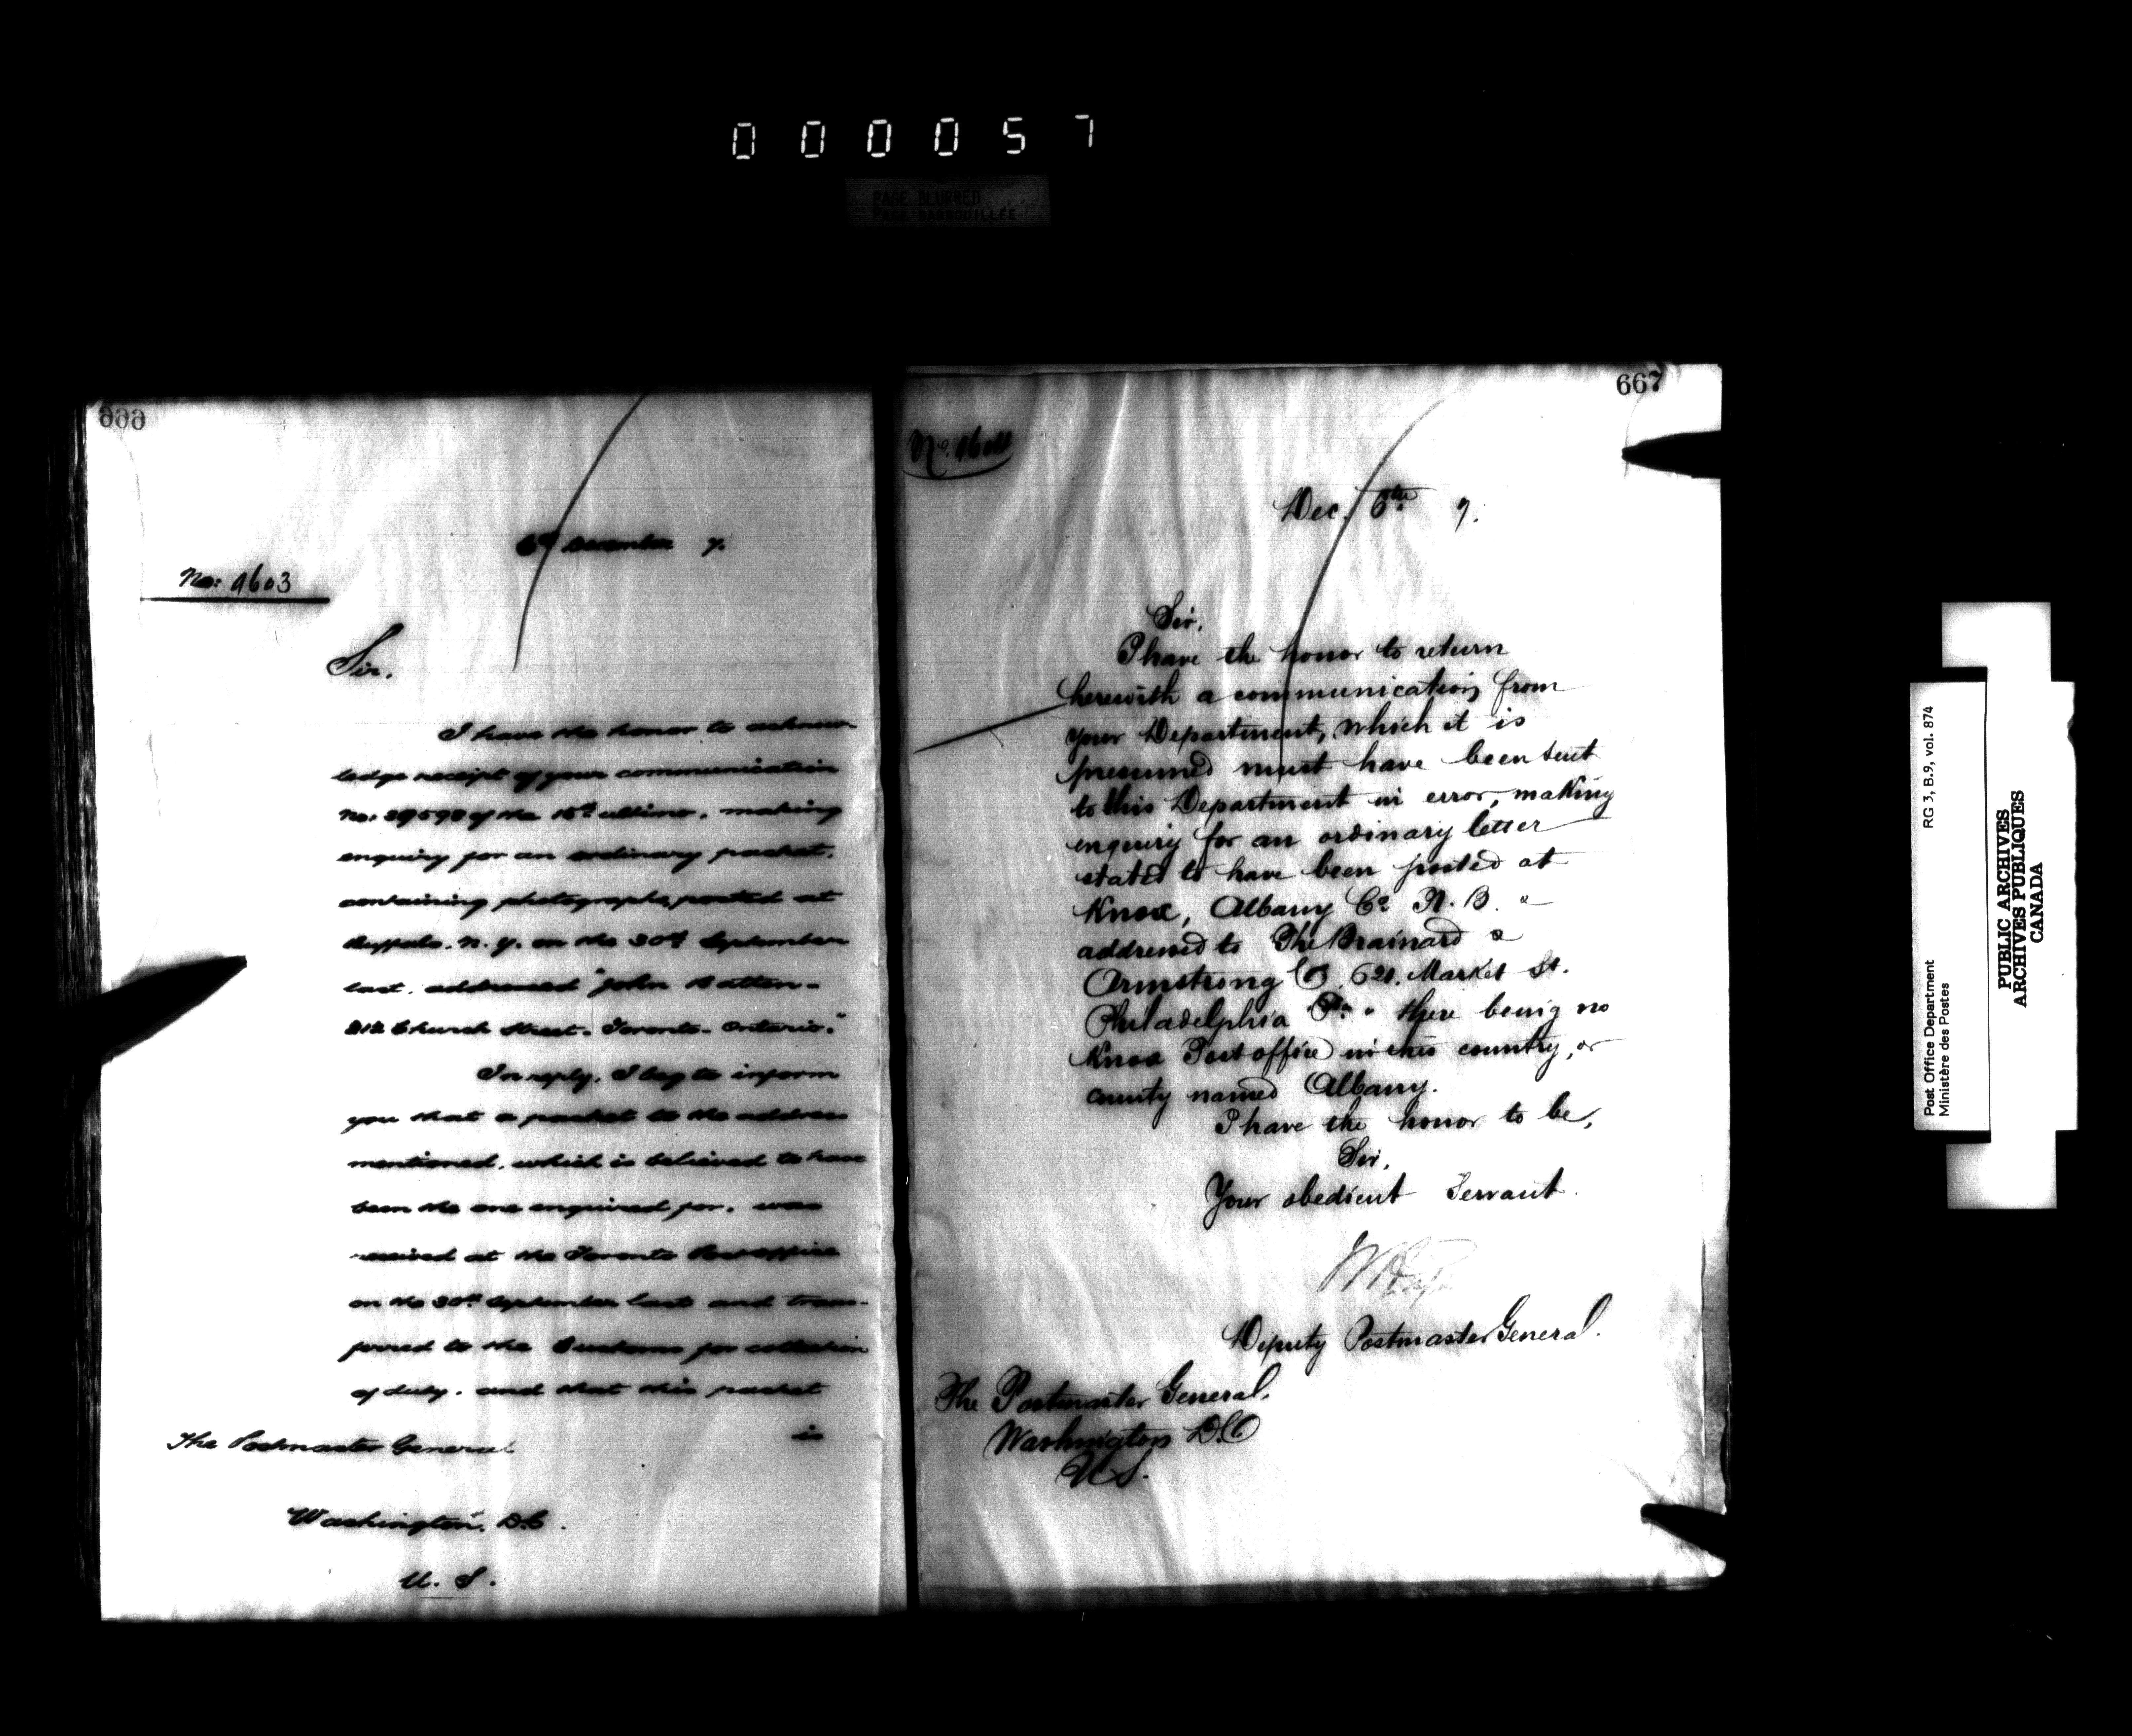 0 0 0 0 5 7
PAGE BLURRED
PAGE BARBOUILLÉE
666
6th December 7.
No: 9603
Sir.
I have the honor to acknow-
ledge receipt of your communication
No: of the 15th ultimo, making
enquiry for an ordinary packet,
containing photographs, posted at
Buffalo. N. Y. on the 30th September
last, addressed "John Batten-
212 Church Street. Toronto. Ontario."
In reply, I beg to inform
you that a packet to the address
mentioned, which is believed to have
been the one enquired for, was
received at the Toronto Post office
on the 30th September last and trans-
ferred to the Customs for collection
of duty, and that this packet
is
The Postmaster General
Washington, D.C.
U. S.
667
No. 9604
Dec. 6th 7.
Sir,
I have the honor to return
herewith a communication from
your Department, which it is
presumed must have been sent
to this Department in error, making
enquiry for an ordinary letter
stated to have been posted at
Knox, Albany Co. N. B. &
addressed to The Brainard &
Armstrong Co. 621. Market St.
Philadelphia Pa. " there being no
Knox Post office in this country, or
county named Albany.
I have the honor to be,
Sir,
Your obedient Servant.
Deputy Postmaster General.
The Postmaster General,
Washington D.C
U.S.
Post Office Department RG 3, B.9, vol. 874
Ministère des Postes
PUBLIC ARCHIVES
ARCHIVES PUBLIQUES
CANADA